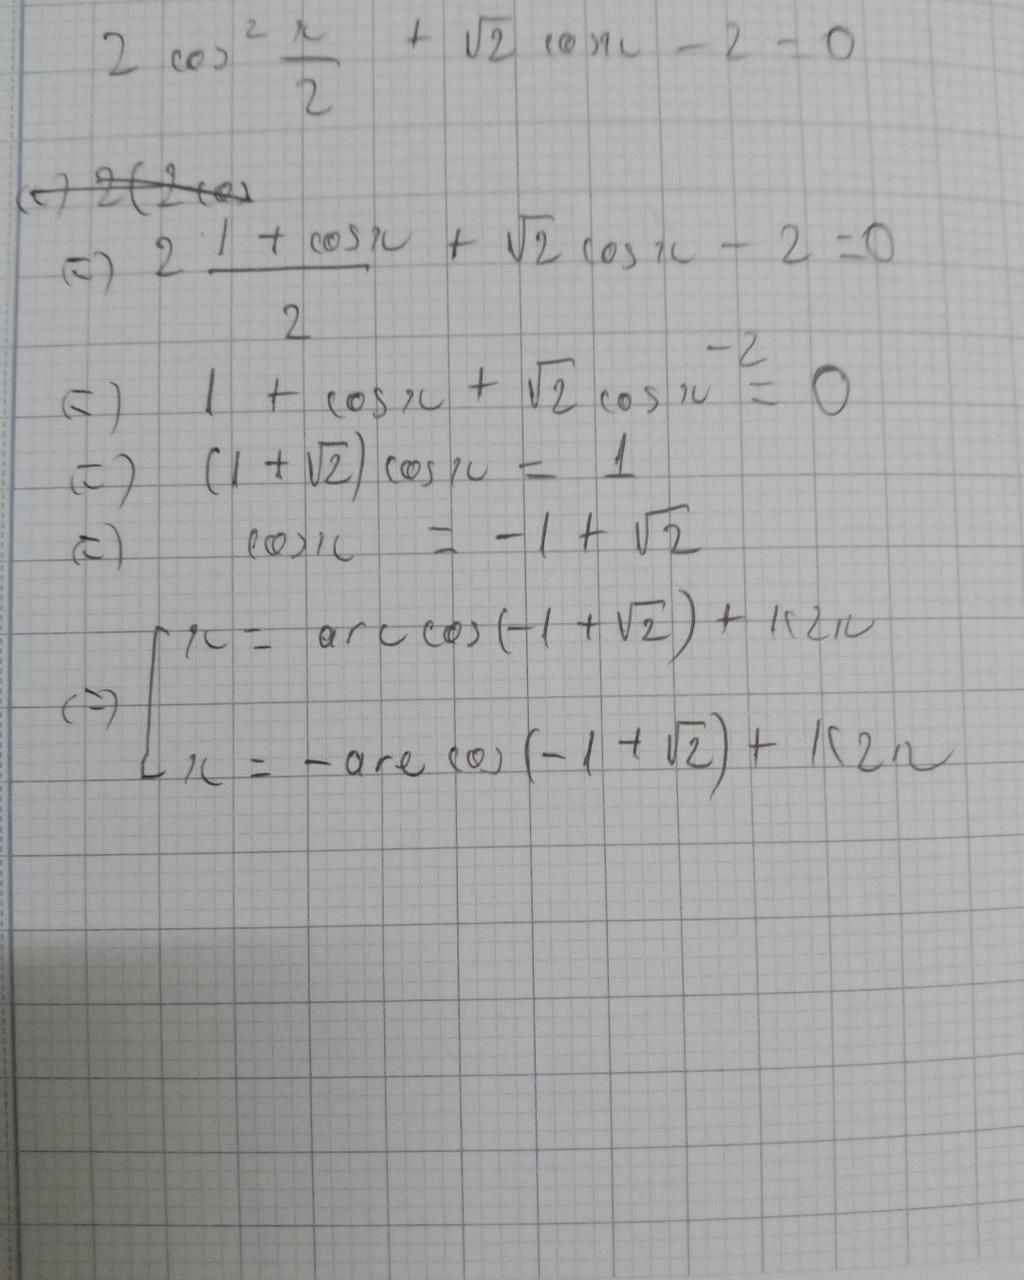 2 cos² x/2 + √2 cosx - 2 = 0
(=) 2(2cos
(=) 2 (1 + cosx)/2 + √2 cosx - 2 = 0
(=) 1 + cosx + √2 cosx - 2 = 0
(=) (1 + √2) cosx = 1
(=) cosx = -1 + √2
(=) [ x = arccos(-1 + √2) + k2π
x = -arccos(-1 + √2) + k2π